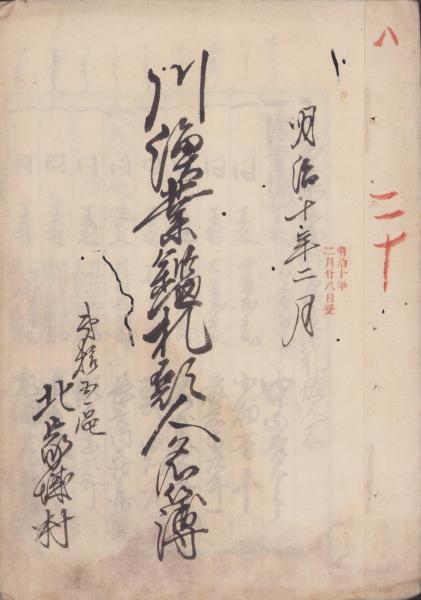 八
二十
明治十年二月
明治十年
二月廿八日受
川漁業鑑札願人名簿
拾
北 村